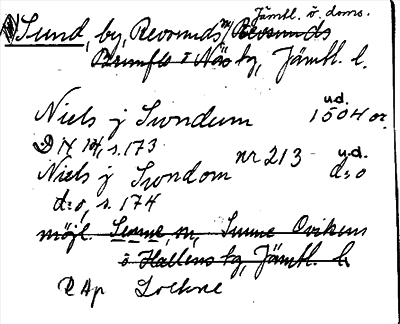 Jämtl. ö. doms.
Sund, by, Revsunds Revsunds
Brunflo o Näs tg, Jämtl. l.
Niels j Swndum u.d. 1504 or.
D N 10/1 s. 173
Niels j Swndom nr 213 u.d. d:o
d:o, s. 174
möjl. Sunne, sn, Sunne Ovikens
o Hallens tg, Jämtl. l.
R Ap Lockne